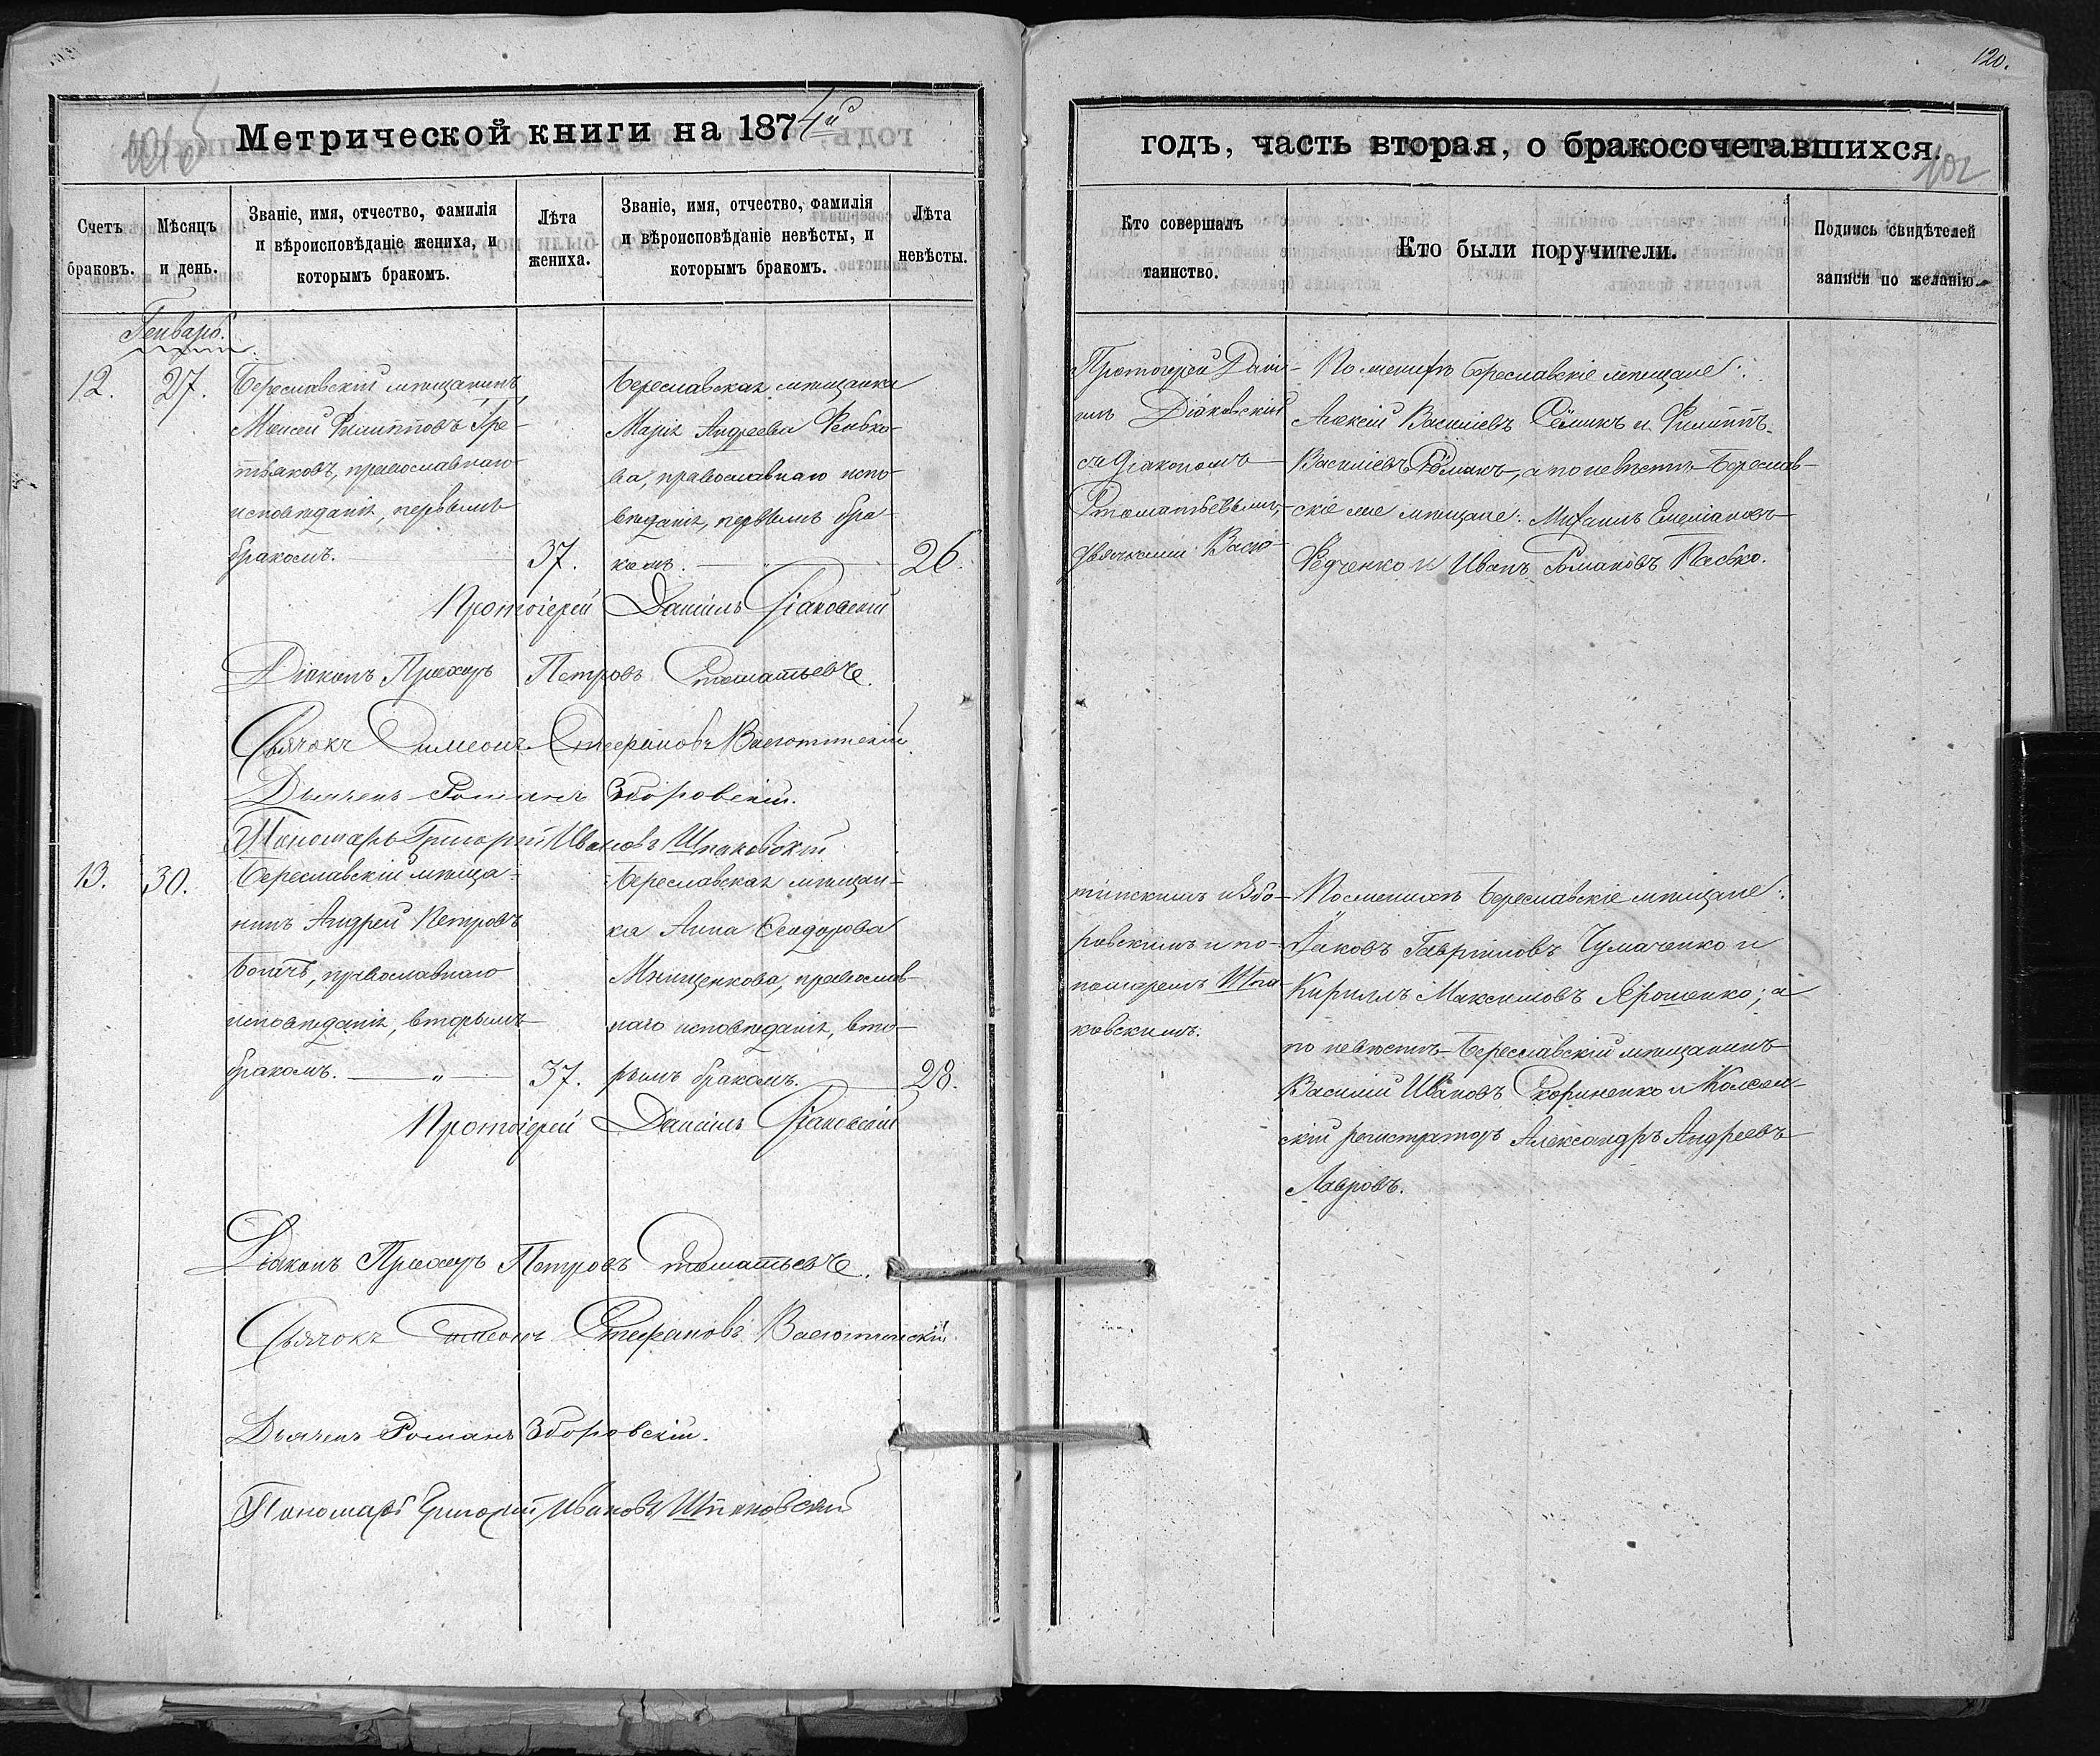 120.
Метрической книги на 1874й
годъ, часть вторая, о бракосочетавшихся.
102
Счетъ браковъ.
Мѣсяцъ и день.
Званіе, имя, отчество, фамилія и вѣроисповѣданіе жениха, и которымъ бракомъ.
Лѣта жениха.
Званіе, имя, отчество, фамилія и вѣроисповѣданіе невѣсты, и которымъ бракомъ.
Лѣта невѣсты.
Кто совершалъ таинство.
Кто были поручители.
Подпись свидѣтелей записи по желанію.
Генварь.
12.
27.
Береславскій мѣщанинъ
Моисей Филипповъ Тре-
тьяковъ, православнаго
исповѣданія, первымъ
бракомъ.
37.
Береславская мѣщанка
Марія Андреева Фенько-
ва, православнаго испо-
вѣданія, первымъ бра-
комъ.
26.
Протоіерей Даніилъ Діаковскій
Діаконъ Прохоръ Петровъ Стоматьевъ.
Дьячокъ Симеонъ Стефановъ Васютинскій.
Дьячекъ Романъ Зборовскій.
Пономарь Григорій Ивановъ Шпаковскій
13.
30.
Береславскій мѣща-
нинъ Андрей Петровъ
Богачъ, православнаго
исповѣданія, вторымъ
бракомъ. — " —
37.
Береславская мѣщан-
ка Анна Феодорова
Мнищенкова, православ-
наго исповѣданія, вто-
рымъ бракомъ.
28.
Протоіерей Даніилъ Діаковскій
Діаконъ Прохоръ Петровъ Стоматьевъ.
Дьячокъ Симеонъ Стефановъ Васютинскій.
Дьячекъ Романъ Зборовскій.
Пономарь Григорій Ивановъ Шпаковскій
Протоіерей Дані-
илъ Діаковскій
съ діакономъ
Стоматьевымъ,
дьячками Васю-
тинскимъ и Збо-
ровскимъ и по-
номаремъ Шпа-
ковскимъ.
По женихѣ береславскіе мѣщане:
Алексій Василіевъ Сёмикъ и Филиппъ
Василіевъ Сёмикъ, а по невѣстѣ Береслав-
скіе же мѣщане: Михаилъ Емеліановъ
Федченко и Иванъ Романовъ Пасько.
По женихѣ Береславскіе мѣщане:
Яковъ Гавріиловъ Чумаченко и
Кириллъ Максимовъ Ярошенко; а
по невѣстѣ Береславскій мѣщанинъ
Василій Ивановъ Скориненко и Коллеж-
скій регистраторъ Александръ Андреевъ
Лавровъ.